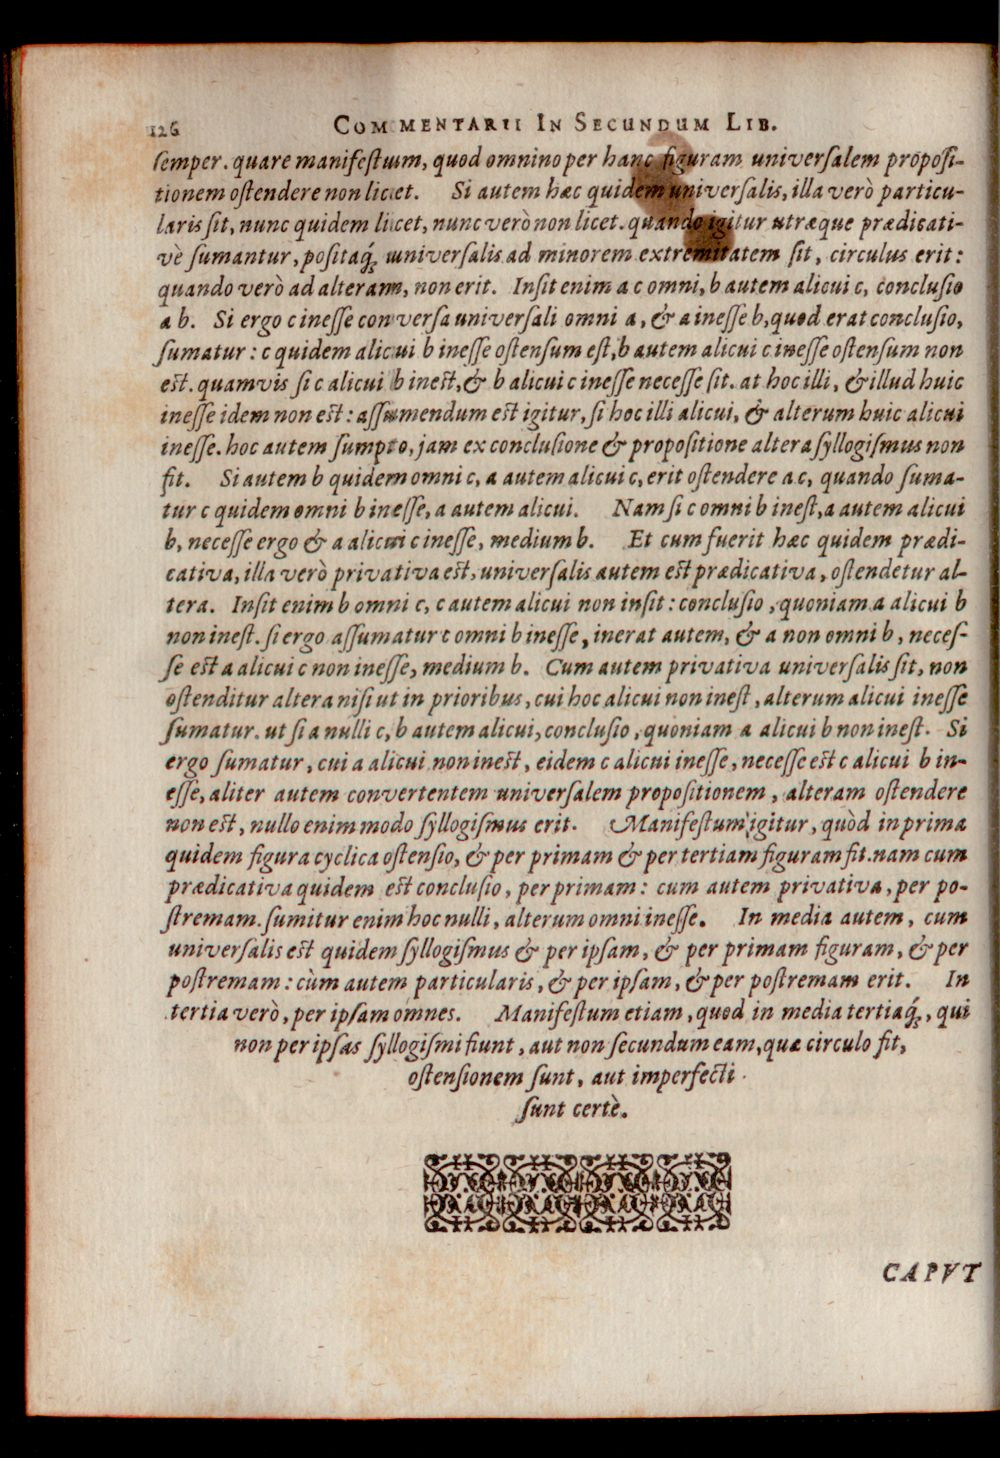 126 COMMENTARII IN SECUNDUM LIB.
semper. quare manifestum, quod omnino per hanc figuram universalem proposi-
tionem ostendere non licet. Si autem hæc quidem universalis, illa verò particu-
laris sit, nunc quidem licet, nunc verò non licet. quando igitur utræque prædicati-
vè sumantur, positaq́; universalis ad minorem extremitatem sit, circulus erit:
quando verò ad alteram, non erit. Insit enim a c omni, b autem alicui c, conclusio
a b. Si ergo c inesse conversa universali omni a, & a inesse b, quod erat conclusio,
sumatur: c quidem alicui b inesse ostensum est, b autem alicui c inesse ostensum non
est. quamvis si c alicui b inest, & b alicui c inesse necesse sit. at hoc illi, & illud huic
inesse idem non est: assumendum est igitur, si hoc illi alicui, & alterum huic alicui
inesse. hoc autem sumpto, jam ex conclusione & propositione altera syllogismus non
fit. Si autem b quidem omni c, a autem alicui c, erit ostendere a c, quando suma-
tur c quidem omni b inesse, a autem alicui. Nam si c omni b inest, a autem alicui
b, necesse ergo & a alicui c inesse, medium b. Et cum fuerit hæc quidem prædi-
cativa, illa verò privativa est, universalis autem est prædicativa, ostendetur al-
tera. Insit enim b omni c, c autem alicui non insit: conclusio, quoniam a alicui b
non inest. si ergo assumatur c omni b inesse, inerat autem, & a non omni b, neces-
se est a alicui c non inesse, medium b. Cum autem privativa universalis sit, non
ostenditur altera nisi ut in prioribus, cui hoc alicui non inest, alterum alicui inesse
sumatur. ut si a nulli c, b autem alicui, conclusio, quoniam a alicui b non inest. Si
ergo sumatur, cui a alicui non inest, eidem c alicui inesse, necesse est c alicui b in-
esse, aliter autem convertentem universalem propositionem, alteram ostendere
non est, nullo enim modo syllogismus erit. Manifestum igitur, quòd in prima
quidem figura cyclica ostensio, & per primam & per tertiam figuram fit. nam cum
prædicativa quidem est conclusio, per primam: cum autem privativa, per po-
stremam. sumitur enim hoc nulli, alterum omni inesse. In media autem, cum
universalis est quidem syllogismus & per ipsam, & per primam figuram, & per
postremam: cùm autem particularis, & per ipsam, & per postremam erit. In
tertia verò, per ipsam omnes. Manifestum etiam, quod in media tertiaq́;, qui
non per ipsas syllogismi fiunt, aut non secundum eam, quæ circulo fit,
ostensionem sunt, aut imperfecti
sunt certè.
CAPVT